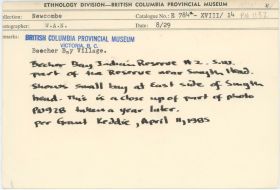 ETHNOLOGY DIVISION—BRITISH COLUMBIA PROVINCIAL MUSEUM
Collection: Newcombe Catalogue No: E 784- XVIII/ 14
Photographer: W.A.N. Date: 8/29
Remarks: BRITISH COLUMBIA PROVINCIAL MUSEUM
VICTORIA, B. C.
Beecher Bay Village.
Becher Bay Indian Reserve #2. S.W.
part of the Reserve near Smyth Head.
Shows small bay at East side of Smyth
head. This is a close up of part of photo
PN928 taken a year later.
per Grant Keddie, April 11, 1985